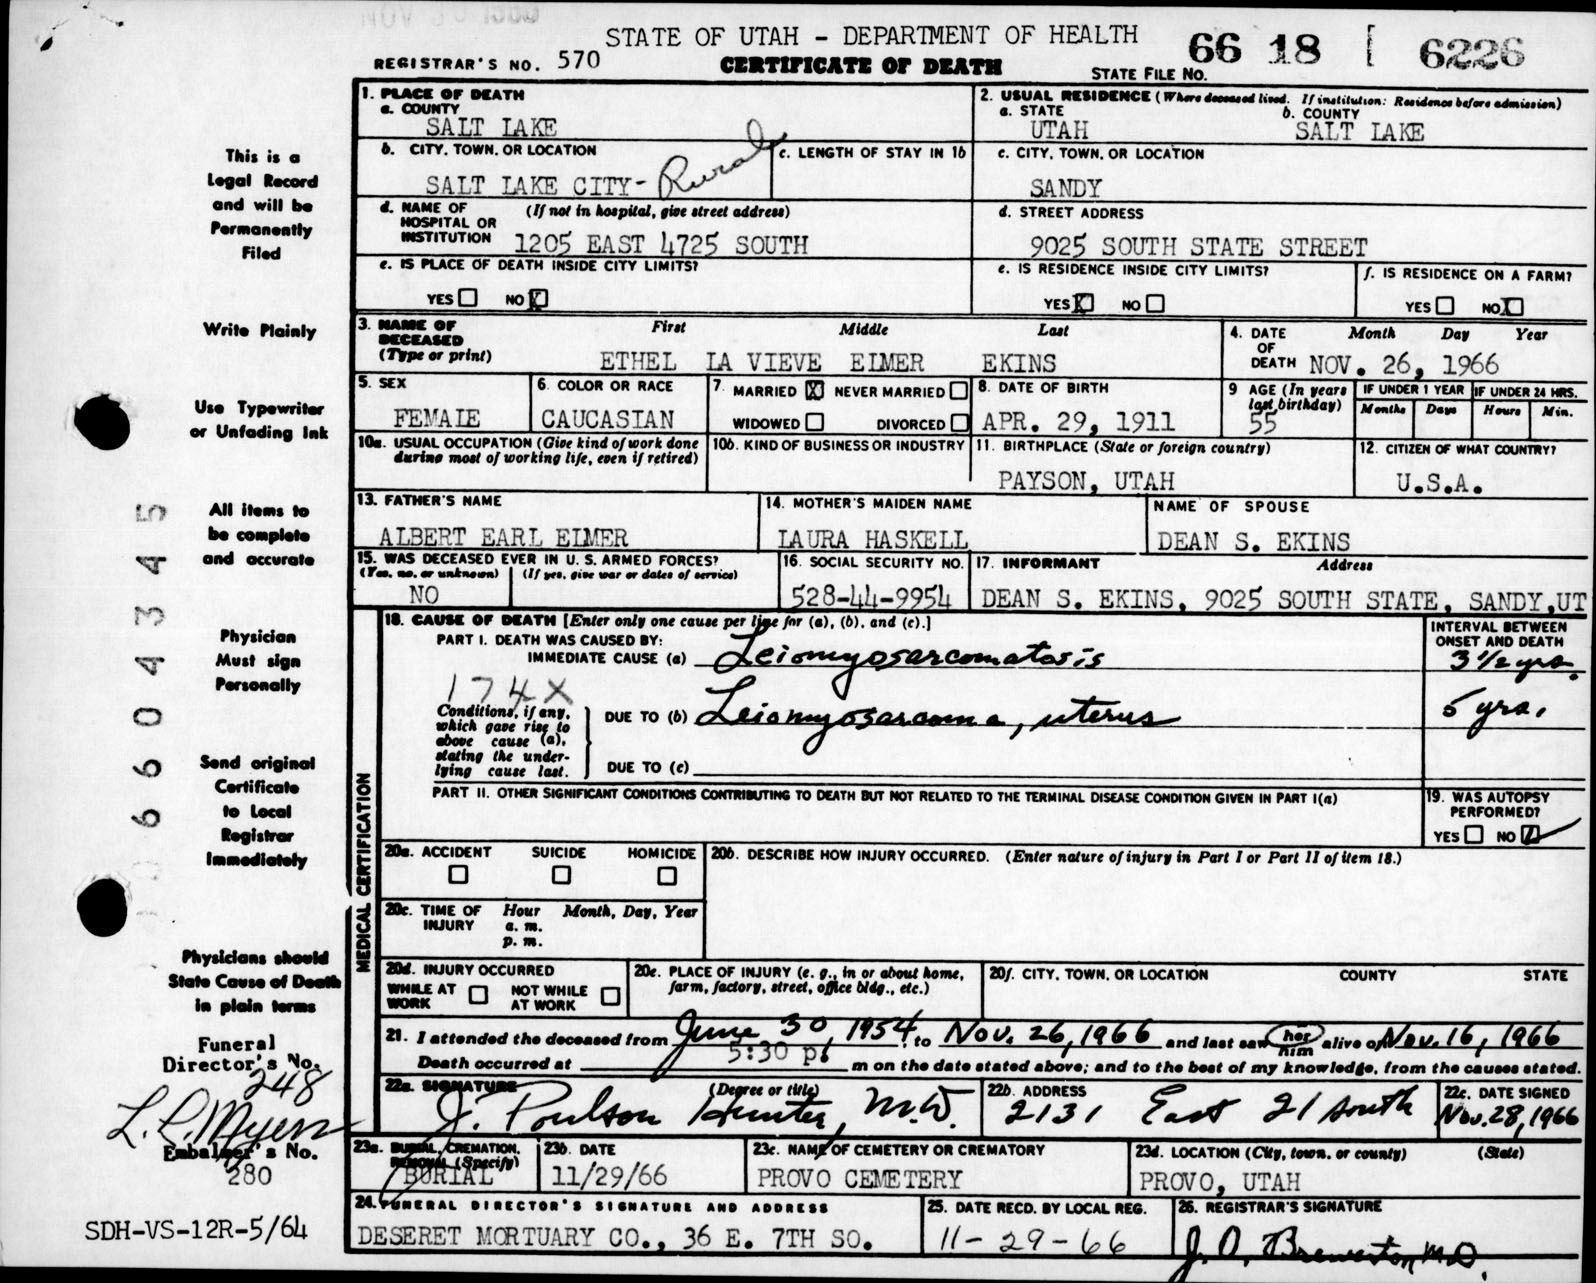 STATE OF UTAH - DEPARTMENT OF HEALTH
66 18 6226
REGISTRAR'S NO. 570
CERTIFICATE OF DEATH
STATE FILE No.
This is a
Legal Record
and will be
Permanently
Filed
Write Plainly
Use Typewriter
or Unfading Ink
All items to
be complete
and accurate
Physician
Must sign
Personally
Send original
Certificate
to Local
Registrar
Immediately
Physicians should
State Cause of Death
in plain terms
Funeral
Director's No.
248
L. C. Myers
Embalmer's No.
280
SDH-VS-12R-5/64
6 6 0 4 3 4 5
1. PLACE OF DEATH
a. COUNTY
SALT LAKE
2. USUAL RESIDENCE (Where deceased lived. If institution: Residence before admission)
a. STATE b. COUNTY
UTAH SALT LAKE
b. CITY, TOWN, OR LOCATION
SALT LAKE CITY- Rural
c. LENGTH OF STAY IN 1b
c. CITY, TOWN, OR LOCATION
SANDY
d. NAME OF HOSPITAL OR INSTITUTION (If not in hospital, give street address)
1205 EAST 4725 SOUTH
d. STREET ADDRESS
9025 SOUTH STATE STREET
e. IS PLACE OF DEATH INSIDE CITY LIMITS?
YES NO X
e. IS RESIDENCE INSIDE CITY LIMITS?
YES X NO
f. IS RESIDENCE ON A FARM?
YES NO X
3. NAME OF DECEASED (Type or print)
First Middle Last
ETHEL LA VIEVE ELMER EKINS
4. DATE OF DEATH
Month Day Year
NOV. 26, 1966
5. SEX
FEMALE
6. COLOR OR RACE
CAUCASIAN
7. MARRIED X NEVER MARRIED
WIDOWED DIVORCED
8. DATE OF BIRTH
APR. 29, 1911
9 AGE (In years last birthday)
55
IF UNDER 1 YEAR
Months Days
IF UNDER 24 HRS.
Hours Min.
10a. USUAL OCCUPATION (Give kind of work done during most of working life, even if retired)
10b. KIND OF BUSINESS OR INDUSTRY
11. BIRTHPLACE (State or foreign country)
PAYSON, UTAH
12. CITIZEN OF WHAT COUNTRY?
U.S.A.
13. FATHER'S NAME
ALBERT EARL ELMER
14. MOTHER'S MAIDEN NAME
LAURA HASKELL
NAME OF SPOUSE
DEAN S. EKINS
15. WAS DECEASED EVER IN U. S. ARMED FORCES?
(Yes, no, or unknown) (If yes, give war or dates of service)
NO
16. SOCIAL SECURITY NO.
528-44-9954
17. INFORMANT Address
DEAN S. EKINS, 9025 SOUTH STATE, SANDY,UT
MEDICAL CERTIFICATION
18. CAUSE OF DEATH [Enter only one cause per line for (a), (b), and (c).]
INTERVAL BETWEEN ONSET AND DEATH
PART I. DEATH WAS CAUSED BY:
IMMEDIATE CAUSE (a) Leiomyosarcomatosis 3 1/2 yrs.
174X
Conditions, if any, which gave rise to above cause (a), stating the underlying cause last.
DUE TO (b) Leiomyosarcoma, uterus 5 yrs.
DUE TO (c)
PART II. OTHER SIGNIFICANT CONDITIONS CONTRIBUTING TO DEATH BUT NOT RELATED TO THE TERMINAL DISEASE CONDITION GIVEN IN PART I(a)
19. WAS AUTOPSY PERFORMED?
YES NO
20a. ACCIDENT SUICIDE HOMICIDE
20b. DESCRIBE HOW INJURY OCCURRED. (Enter nature of injury in Part I or Part II of item 18.)
20c. TIME OF INJURY Hour Month, Day, Year
a. m.
p. m.
20d. INJURY OCCURRED
WHILE AT WORK NOT WHILE AT WORK
20e. PLACE OF INJURY (e. g., in or about home, farm, factory, street, office bldg., etc.)
20f. CITY, TOWN, OR LOCATION COUNTY STATE
21. I attended the deceased from June 30, 1954, to Nov. 26, 1966 and last saw her him alive on Nov. 16, 1966
Death occurred at 5:30 p. m on the date stated above; and to the best of my knowledge, from the causes stated.
22a. SIGNATURE (Degree or title)
J. Poulson Hunter, M.D.
22b. ADDRESS
2131 East 21 South
22c. DATE SIGNED
Nov. 28, 1966
23a. BURIAL, CREMATION, REMOVAL (Specify)
BURIAL
23b. DATE
11/29/66
23c. NAME OF CEMETERY OR CREMATORY
PROVO CEMETERY
23d. LOCATION (City, town, or county) (State)
PROVO, UTAH
24. FUNERAL DIRECTOR'S SIGNATURE AND ADDRESS
DESERET MORTUARY CO., 36 E. 7TH SO.
25. DATE RECD. BY LOCAL REG.
11-29-66
26. REGISTRAR'S SIGNATURE
J. D. Brewerton M.D.